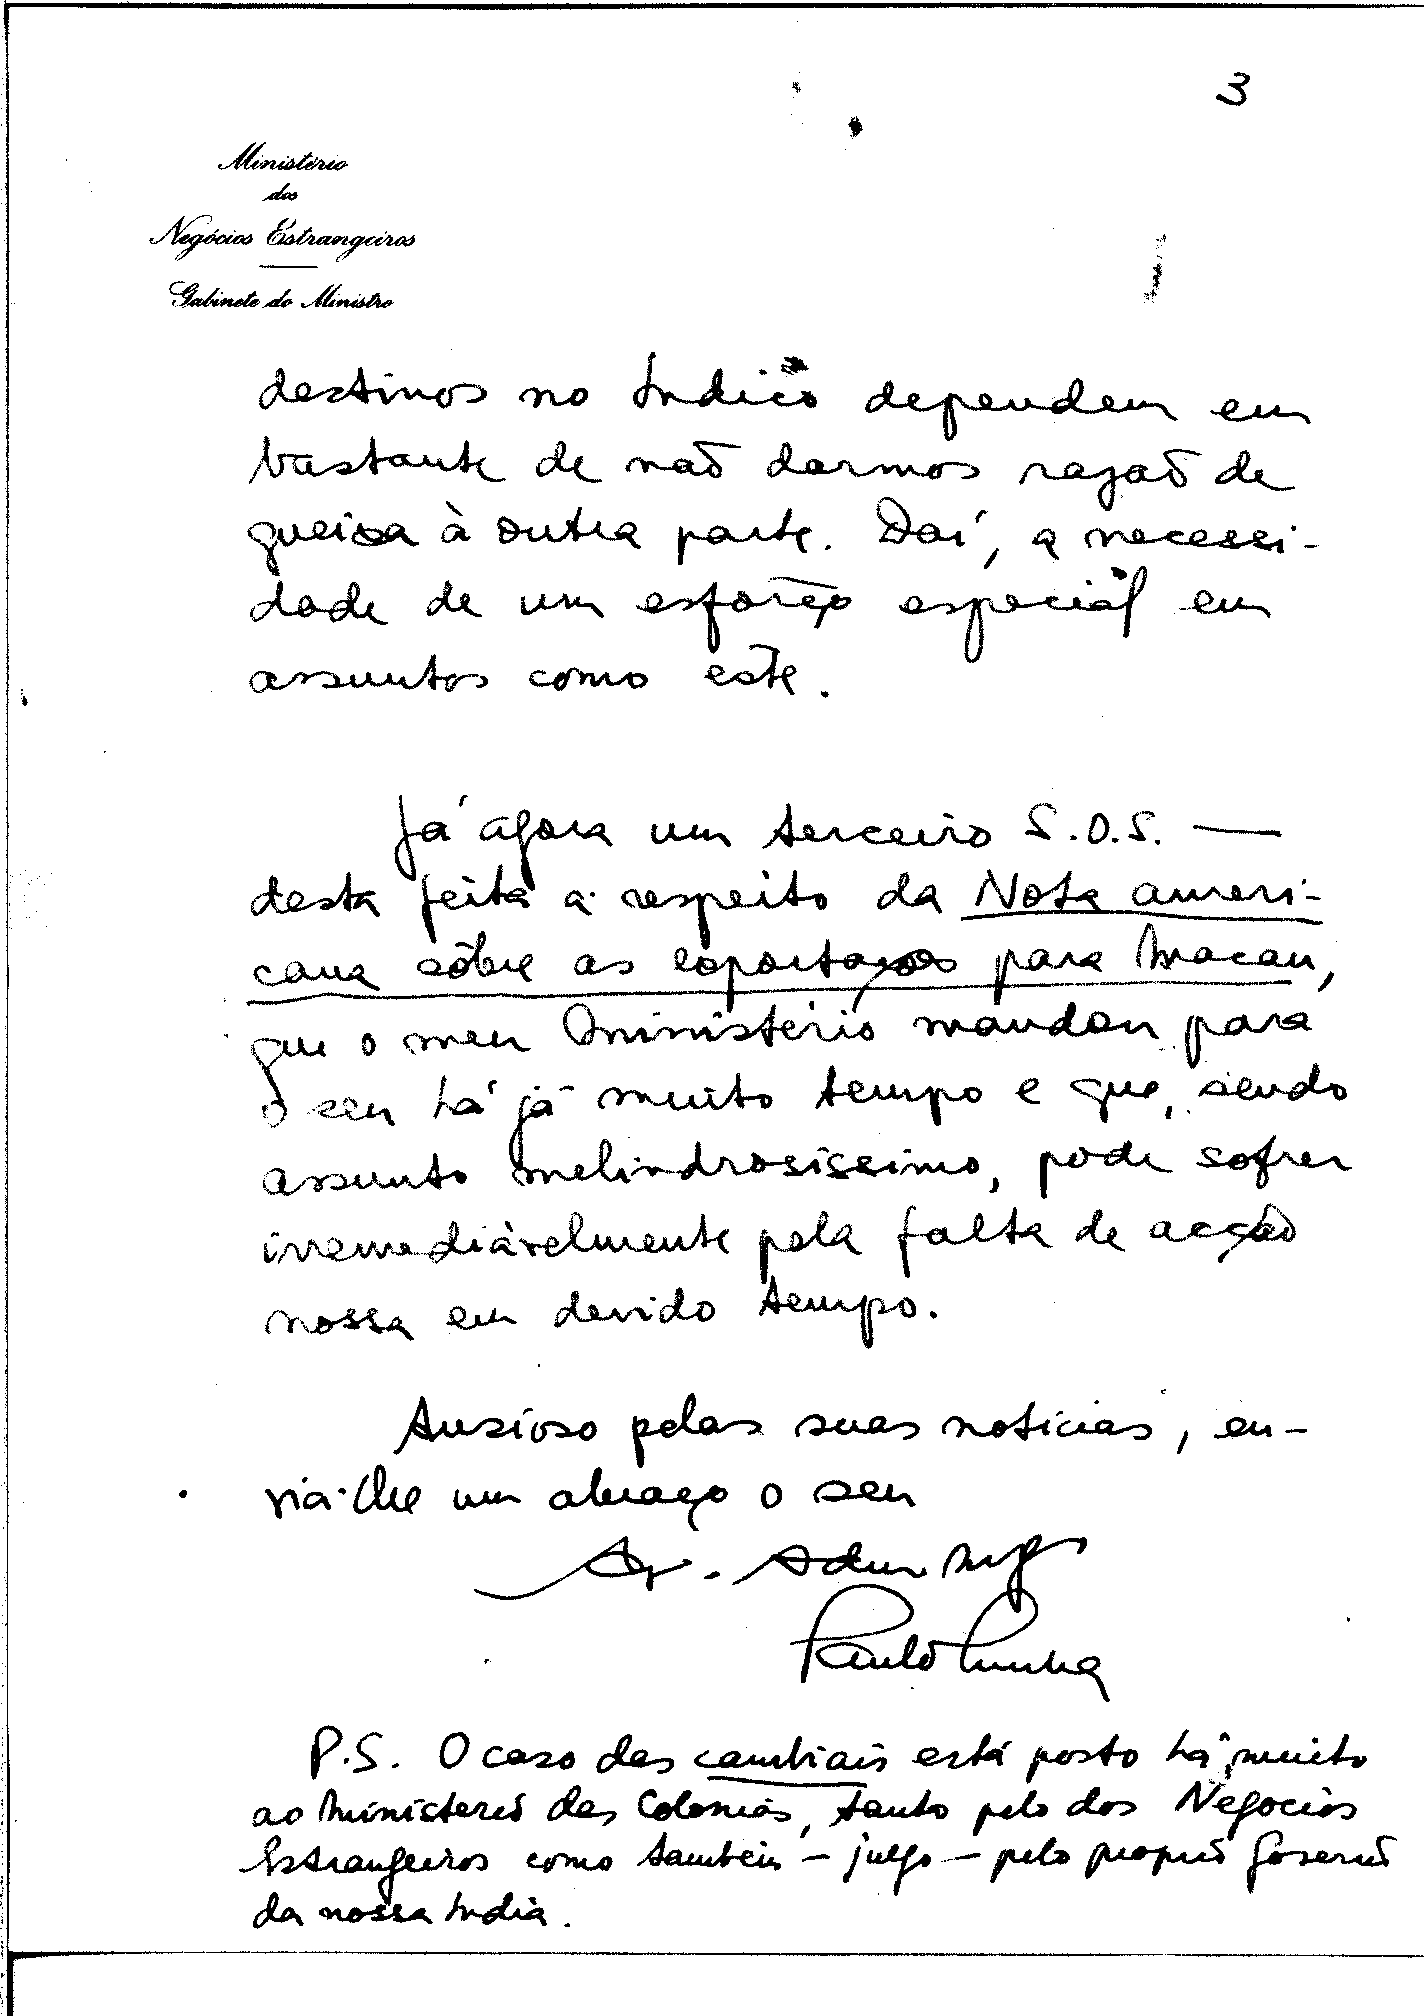 3
Ministério
dos
Negócios Estrangeiros
Gabinete do Ministro
destinos no Indico dependem em
bastante de não darmos razão de
queixa à outra parte. Daí, a necessi-
dade de um esfôrço especial em
assuntos como êste.
Já agora um terceiro S.O.S. —
desta feita a respeito da Nota ameri-
cana sôbre as exportações para Macau,
que o meu Ministério mandou para
o seu há já muito tempo e que, sendo
assunto melindrosíssimo, pode sofrer
irremediàvelmente pela falta de acção
nossa em devido tempo.
Ansioso pelas suas notícias, en-
via-lhe um abraço o seu
Paulo Cunha
P.S. O caso das cambiais está posto há muito
ao Ministério das Colonias, tanto pelo dos Negocios
Estrangeiros como também – julgo – pelo proprio Governo
da nossa India.